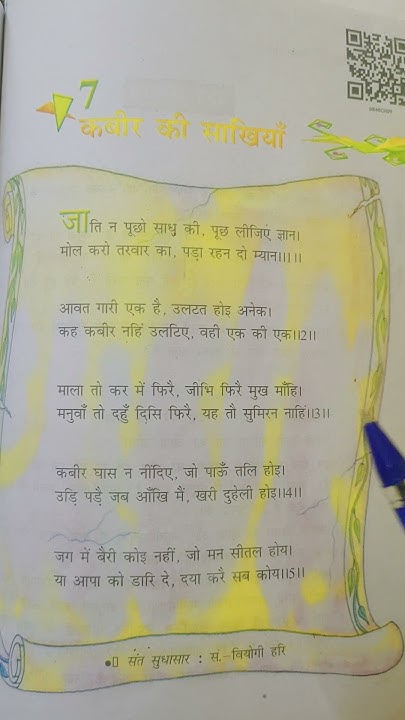 7
कबीर की साखियाँ
जाति न पूछो साधु की, पूछ लीजिए ज्ञान।
मोल करो तरवार का, पड़ा रहन दो म्यान।।1।।
आवत गारी एक है, उलटत होइ अनेक।
कह कबीर नहिं उलटिए, वही एक की एक।।2।।
माला तो कर में फिरै, जीभि फिरै मुख माँहि।
मनुवाँ तो दहुँ दिसि फिरै, यह तौ सुमिरन नाहिं।।3।।
कबीर घास न नींदिए, जो पाऊँ तलि होइ।
उड़ि पड़ै जब आँखि मैं, खरी दुहेली होइ।।4।।
जग में बैरी कोइ नहीं, जो मन सीतल होय।
या आपा को डारि दे, दया करै सब कोय।।5।।
संत सुधासार : स.-वियोगी हरि